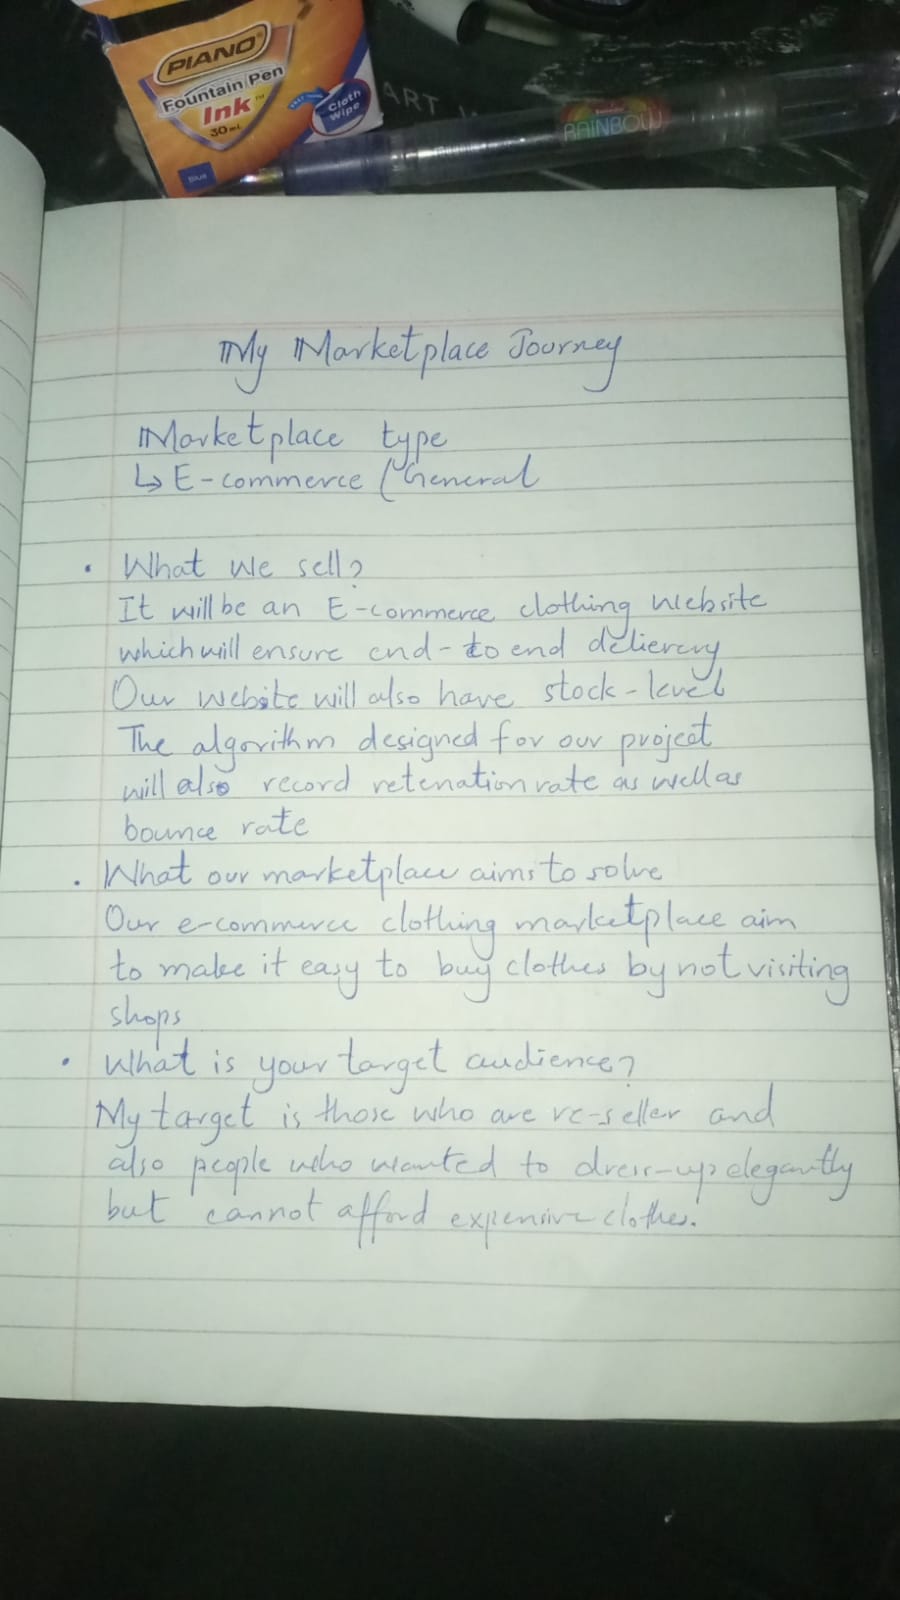 PIANO
Fountain Pen
Ink™
30 mL
Cloth
Wipe
Blue
ART
RAINBOW
My Marketplace Journey
Marketplace type
↳ E-commerce (General
• What we sell?
It will be an E-commerce clothing website
which will ensure end-to end delierery
Our website will also have stock-level
The algorithm designed for our project
will also record retenation rate as well as
bounce rate
• What our marketplace aims to solve
Our e-commerce clothing marketplace aim
to make it easy to buy clothes by not visiting
shops
• What is your target audience?
My target is those who are re-seller and
also people who wanted to dress-up elegantly
but cannot afford expensive clothes.